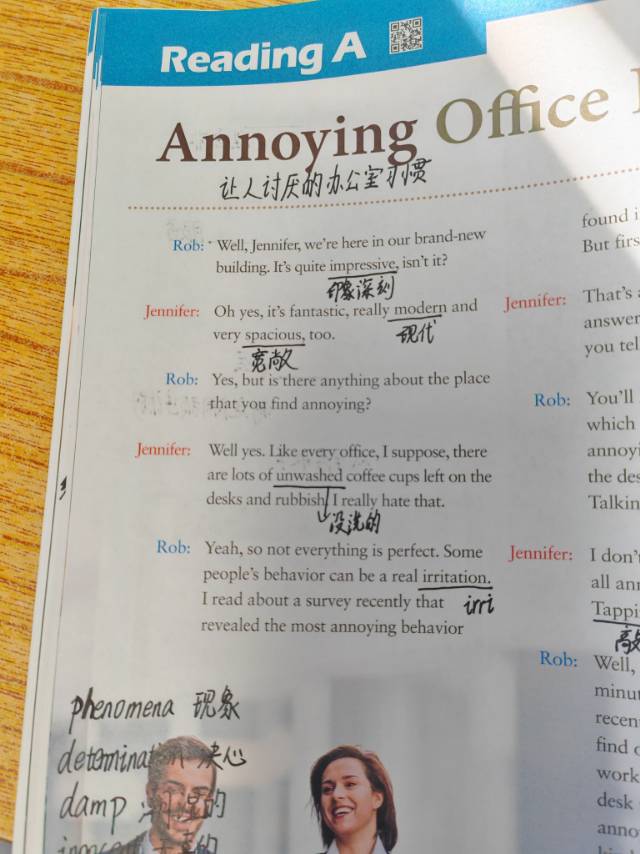 Reading A
Annoying Office
让人讨厌的办公室习惯
Rob: Well, Jennifer, we're here in our brand-new
building. It's quite impressive, isn't it?
印象深刻
Jennifer: Oh yes, it's fantastic, really modern and
very spacious, too.
现代
宽敞
Rob: Yes, but is there anything about the place
that you find annoying?
Jennifer: Well yes. Like every office, I suppose, there
are lots of unwashed coffee cups left on the
desks and rubbish. I really hate that.
没洗的
Rob: Yeah, so not everything is perfect. Some
people's behavior can be a real irritation.
I read about a survey recently that
irri
revealed the most annoying behavior
phenomena 现象
determination 决心
damp
found i
But firs
Jennifer: That's
answer
you tel
Rob: You'll
which
annoyi
the des
Talkin
Jennifer: I don't
all ann
Tappi
Rob: Well,
minut
recen
find o
work
desk
anno